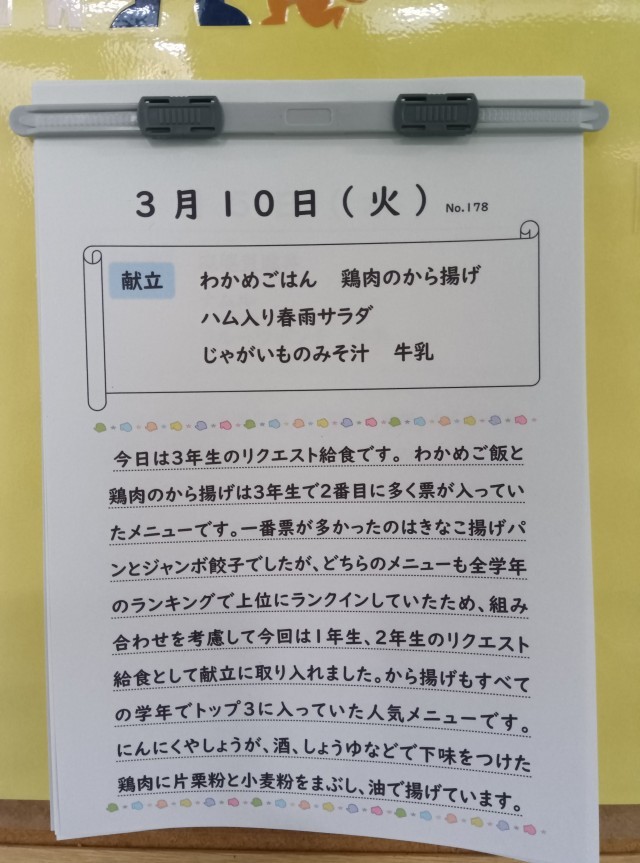 3月10日(火) No.178
献立 わかめごはん 鶏肉のから揚げ
ハム入り春雨サラダ
じゃがいものみそ汁 牛乳
今日は3年生のリクエスト給食です。わかめご飯と
鶏肉のから揚げは3年生で2番目に多く票が入ってい
たメニューです。一番票が多かったのはきなこ揚げパ
ンとジャンボ餃子でしたが、どちらのメニューも全学年
のランキングで上位にランクインしていたため、組み
合わせを考慮して今回は1年生、2年生のリクエスト
給食として献立に取り入れました。から揚げもすべて
の学年でトップ3に入っていた人気メニューです。
にんにくやしょうが、酒、しょうゆなどで下味をつけた
鶏肉に片栗粉と小麦粉をまぶし、油で揚げています。